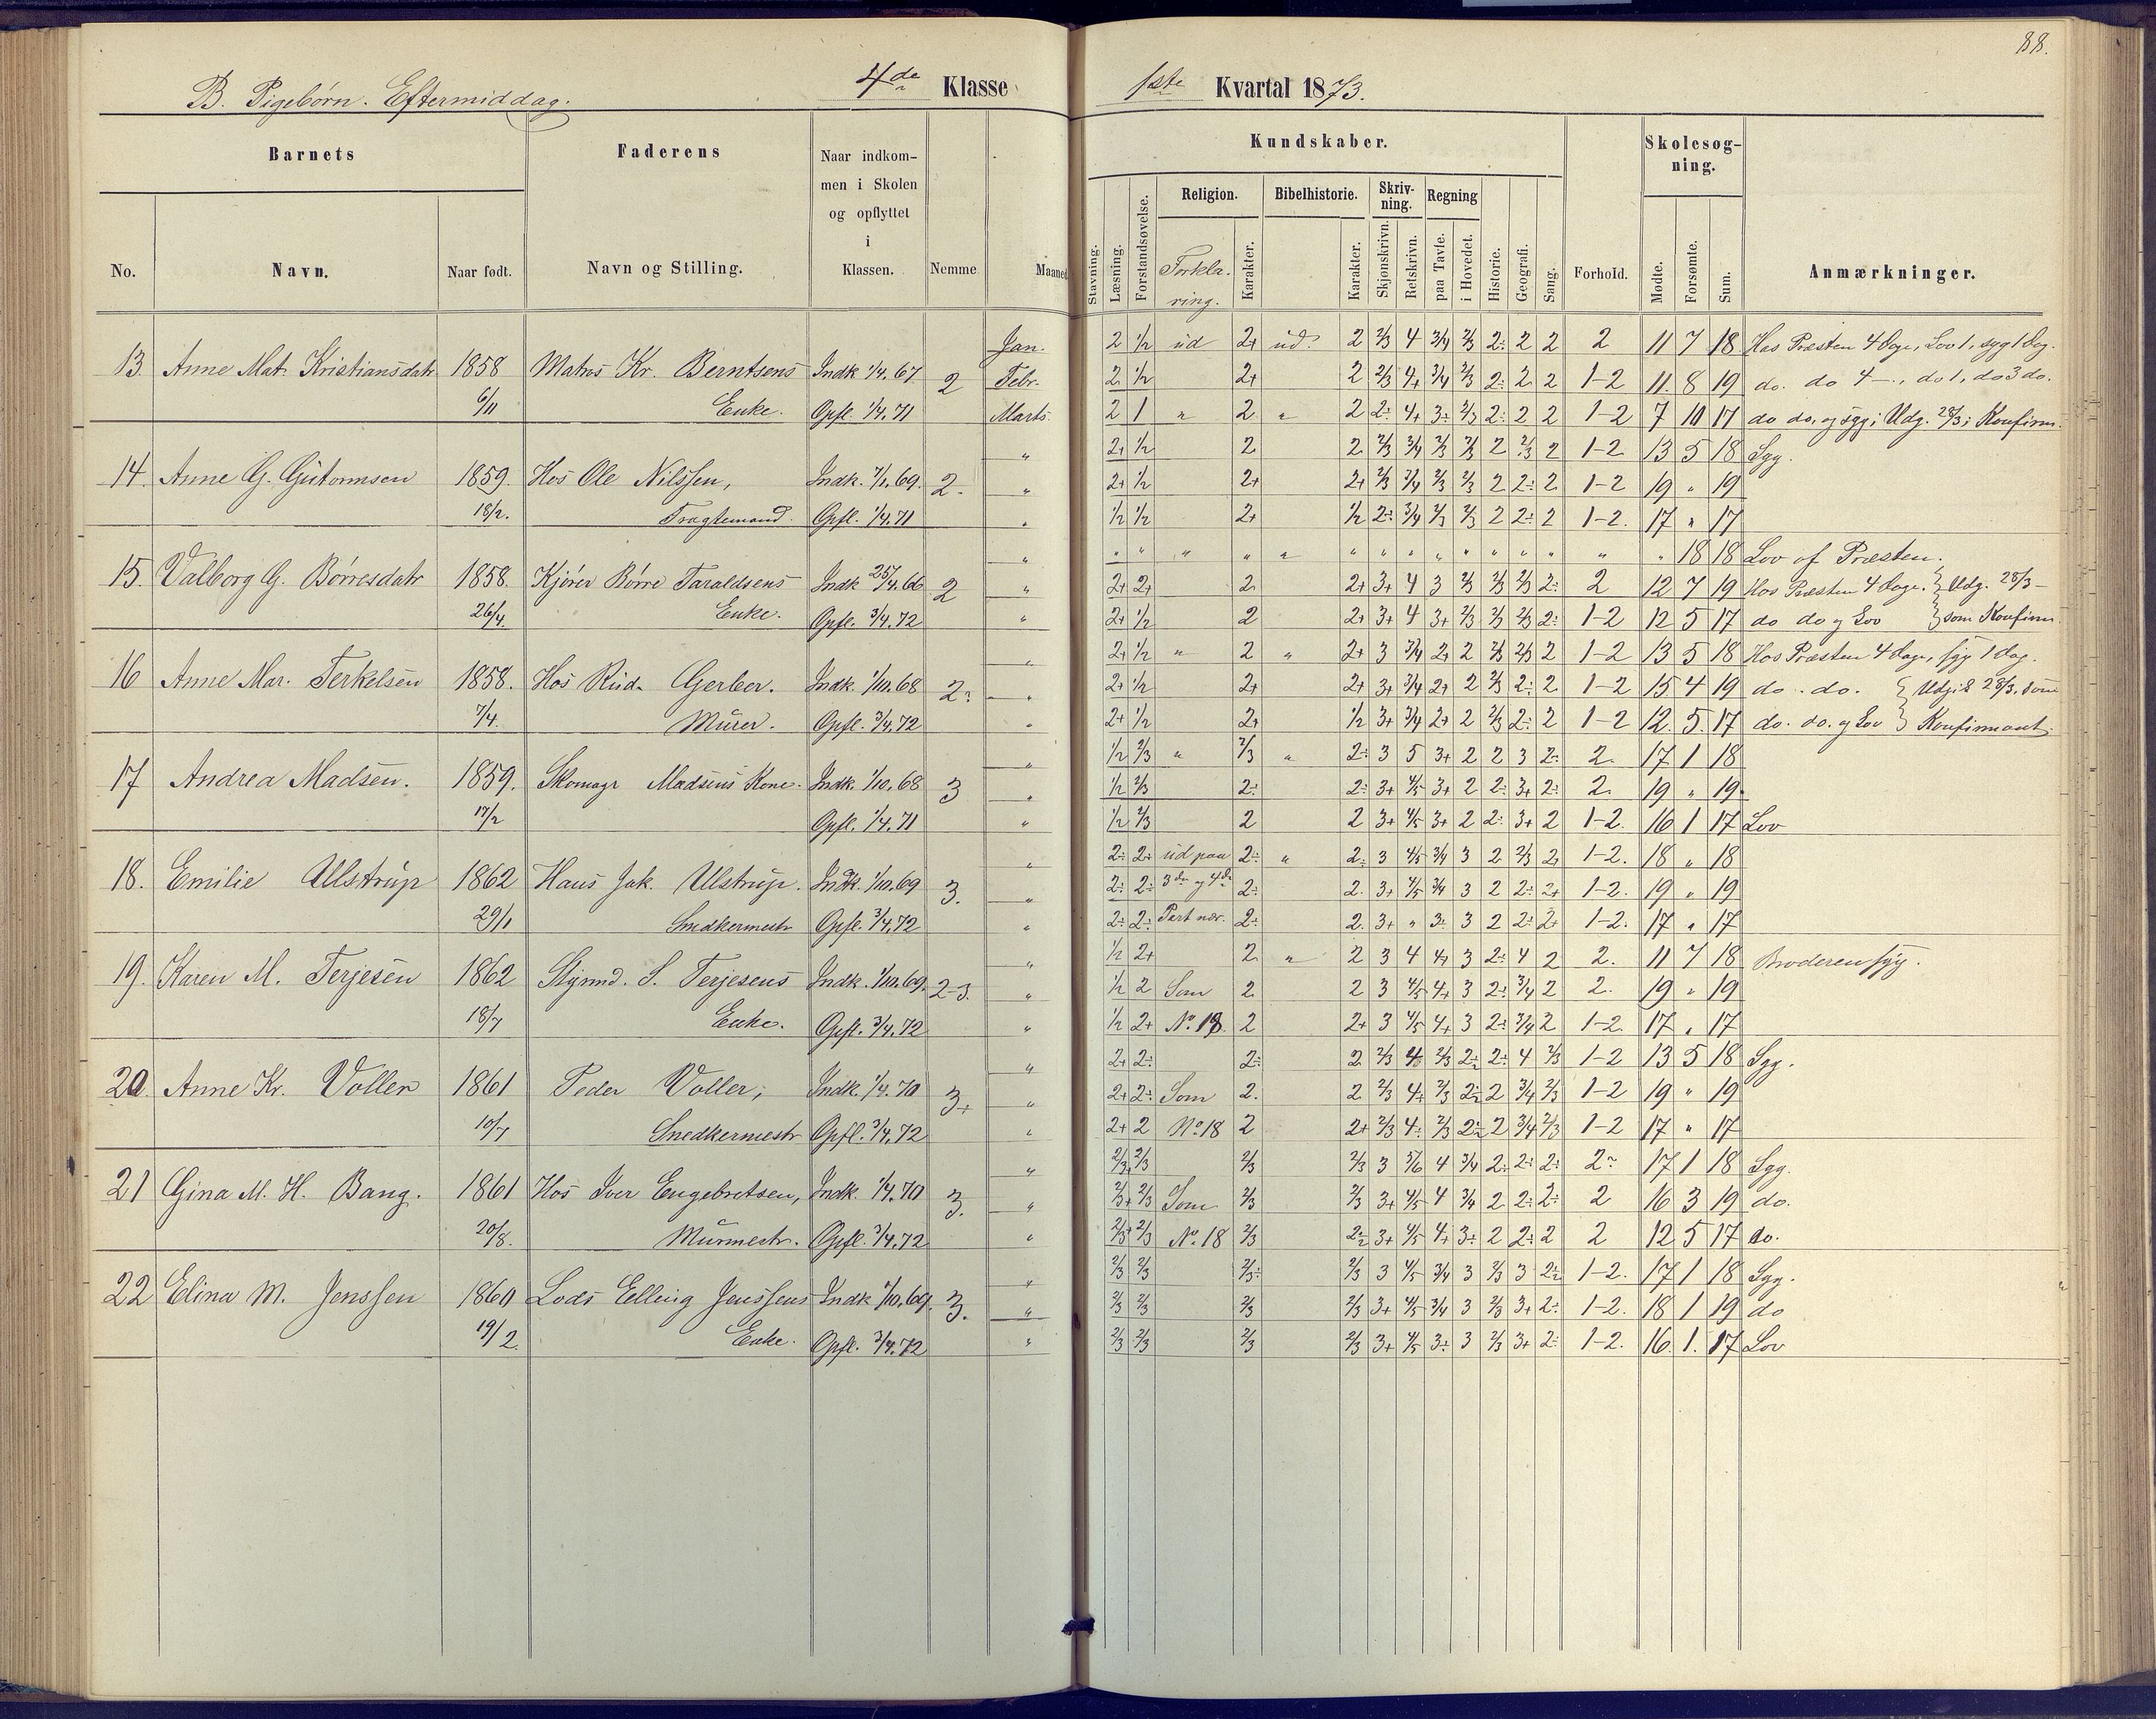 88.
B. Pigebørn. Eftermiddag. 4de Klasse
1ste Kvartal 1873.
Barnets Faderens Naar indkom-
men i Skolen
og opflyttet
i
Klassen.
No. Navn. Naar født. Navn og Stilling. Nemme Maaned
Kundskaber. Skolesøg-
ning.
Religion. Bibelhistorie. Skriv-
ning. Regning
Stavning. Læsning. Forstandsøvelse. Forkla-
ring. Karakter. Karakter. Skjønskrivn. Retskrivn. paa Tavle. i Hovedet. Historie. Geografi. Sang. Forhold. Mødte. Forsømte. Sum. Anmærkninger.
13. Anne Mat. Kristiansdatr 1858 Matros Kr. Berntsens Indk 1/4. 67 2 Jan.
Febr.
6/11 Enke. Opfl. 1/4. 71 Marts
14. Anne G. Gutormsen 1859. Hos Ole Nilssen, Indk. 7/1. 69. 2. "
18/2. Fragtemand. Opfl. 1/4. 71 "
15. Valborg G. Børresdatr 1858. Kjører Børre Taraldsens Indk 25/4. 66 2 "
26/4. Enke. Opfl. 3/4. 72 "
16 Anne Mar. Terkelsen 1858. Hos Rud. Gerber. Indk. 1/10. 68 2: "
7/4. Murer. Opfl. 3/4. 72 "
17 Andrea Madsen. 1859. Skomagr Madsens Kone. Indk. 1/10. 68 3 "
17/2 Opfl. 1/4. 71 "
18. Emilie Ullstrup 1862 Hans Jak. Ulstrup. Indk. 1/10. 69 3. "
29/1 Snedkermestr Opfl. 3/4. 72 "
19. Karen M. Terjesen 1862 Styrmd. S. Terjesens Indk. 1/10. 69. 2-3. "
18/7 Enke. Opfl. 3/4. 72 "
20. Anne Kr. Voller 1861 Peder Voller, Indk. 1/4. 70 3+ "
10/7 Snedkermestr Opfl. 3/4. 72 "
21 Gina M. H. Bang. 1861 Hos Iver Engebretsen, Indk. 1/4. 70 3. "
20/8. Murmestr. Opfl. 3/4. 72 "
22 Elina M. Jenssen 1860 Lods Elling Jenssens Indk 1/10. 69. 3. "
19/2. Enke. Opfl. 3/4. 72 "
2 1/2 ud 2+ ud: 2 2/3 4 3/4 2/3 2: 2 2 2 11 7 18 Hos Præsten 4 Dage, Lov 1, syg 1 Dag.
2 1/2 2+ 2 2/3 4+ 3/4 2/3 2: 2 2 1-2 11. 8 19 do. do 4 —., do 1, do 3 do.
2 1 " 2 " 2 2: 4+ 3: 2/3 2: 2 2 1-2 7 10 17 do do, og syg; Udg. 28/3 i Konfirm.
2+ 1/2 2 2 2/3 3/4 2/3 2/3 2 2/3 2 1-2 13 5 18 Syg.
2+ 1/2 2+ 2+ 2/3 3/4 2/3 2/3 2 2: 2 1-2 19 " 19
1/2 1/2 2+ 1/2 2: 3/4 2/3 2/3 2 2: 2 1-2. 17 " 17
" " " " " " " " " " " " " " " 18 18 Lov af Præsten.
2+ 2+ 2 2+ 3+ 4 3 2/3 2/3 2/3 2: 2 12 7 19 Hos Præsten 4 Dage. } Udg. 28/3 —
2+ 1/2 2 2+ 3+ 4 3+ 2/3 2/3 2/3 2: 1-2 12 5 17 do do og Lov } som Konfirm.
2+ 1/2 " 2 " 2+ 3 3/4 2+ 2 2/3 2/3 2 1-2 13 5 18 Hos Præsten 4 Dage, syg 1 Dag.
2+ 1/2 2+ 2+ 3+ 3/4 2+ 2 2/3 2: 2 1-2 15 4 19 do. do. } Udgik 28/3. som
2+ 1/2 2+ 1/2 3+ 3/4 2+ 2 2/3 2: 2 1-2 12. 5. 17 do. do. og Lov } Konfirmant.
1/2 2/3 " 2/3 " 2: 3 5 3+ 2 2 3 2: 2. 17 1 18
1/2 2/3 2: 2: 3+ 4/5 3+ 2 2: 3+ 2: 2. 19 " 19.
1/2 2/3 2 2 3+ 4/5 3+ 2 2: 3+ 2 1-2. 16 1 17 Lov
2: 2: ud paa 2: " 2: 3 4/5 3/4 3 2 2/3 2+ 1-2. 18 " 18
2: 2: 3de og 4de 2: 2. 3+ 4/5 3/4 3 2 2: 2+ 1-2. 19 " 19
2: 2: Part nær. 2: 2. 3+ " 3: 3 2 2: 2+ 1-2. 17 " 17
1/2 2+ 2. " 2 3 4 4+ 3 2: 4 2 2. 11 7 18 Broderen syg.
1/2 2 Som 2. 2 3 4/5 4+ 3 2: 3/4 2 2. 19 " 19
1/2 2+ No. 18. 2 2+ 3 4/5 4+ 3 2: 3/4 2 1-2. 17 " 17
2+ 2: 2: 2 2/3 4 2/3 2: 2: 4 2/3 1-2 13 5 18 Syg.
2+ 2: Som 2. 2 2/3 4+ 2/3 2: 2 3/4 2/3 1-2 19 " 19
2+ 2 No. 18 2 2+ 2/3 4: 2/3 2: 2 3/4 2/3 1-2 17 " 17
2/3 2/3 2/3 2/3 3 5/6 4 3/4 2: 2: 2: 2: 17 1 18 Syg.
2/3+ 2/3 Som 2/3 2/3 3+ 4/5 4 3/4 2 2: 2: 2 16 3 19 do.
2/3+ 2/3 No. 18 2/3 2: 3+ 4/5 4+ 3: 2 2: 2 2 12 5 17 do.
2/3 2/3 2/3: 2/3 3 4/5 3/4 3 2/3 3 2: 1-2. 17 1 18 Syg.
2/3 2/3 2/3 2/3 3+ 4/5 3/4 3 2/3 3+ 2: 1-2. 18 1 19 do
2/3 2/3 2/3 2/3 3+ 4/5 3: 3 2/3 3+ 2: 1-2. 16. 1. 17 Lov